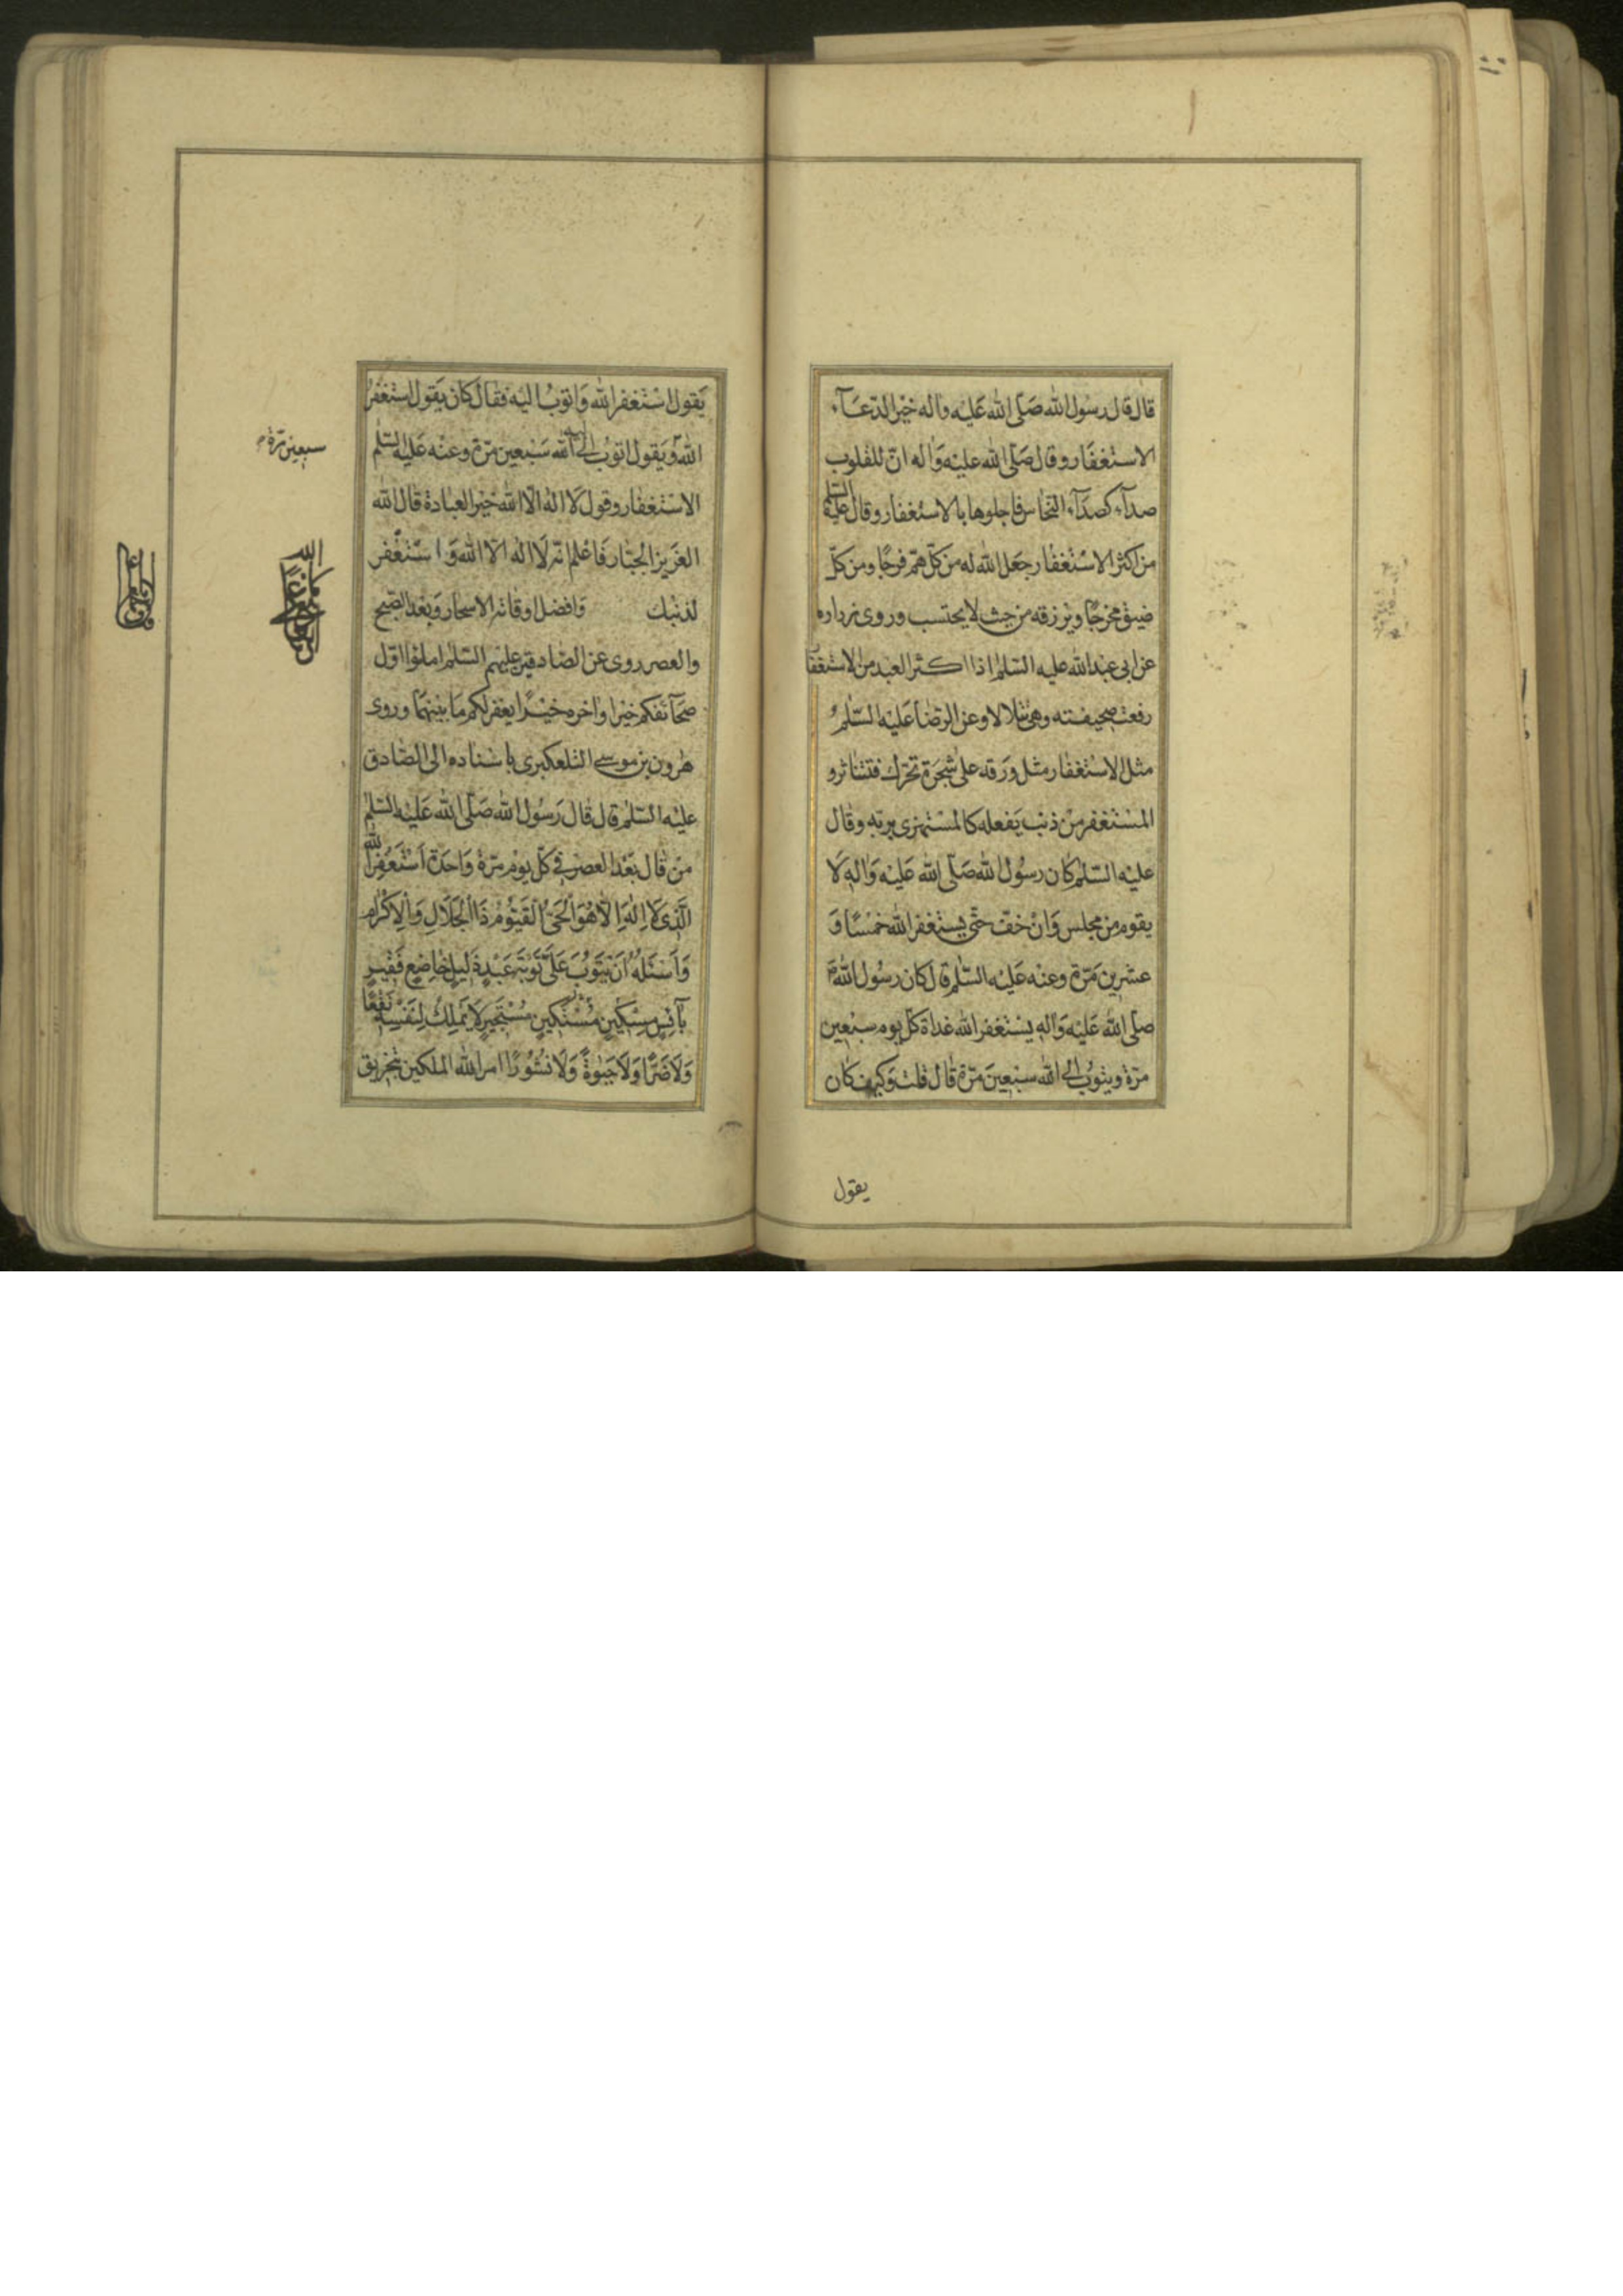 قال قال رسول الله صلّى الله عليه واله خير الدّعآء
الاستغفار وقال صلّى الله عليه واله انّ للقلوب
صدآء كصدآء النّحاس فاجلوها بالاستغفار وقال عليه السّلم
من اكثر الاستغفار جعل الله له من كلّ همّ فرجًا ومن كلّ
ضيق مخرجًا ويرزقه من حيث لا يحتسب وروى زراره
عن ابى عبد الله عليه السّلم اذا اكثر العبد من الاستغفا
رفعت صحيفته وهى تتلالا وعن الرّضا عليه السّلم
مثل الاستغفار مثل ورقة على شجرة تحرّك فتتناثر و
المستغفر من ذنب يفعله كالمستهزى بربّه وقال
عليه السّلم كان رسول الله صلّى الله عليه واله لا
يقوم من مجلس وان خفّ حتّى يستغفر الله خمسًا و
عشرين مرّة وعنه عليه السّلم قال كان رسول الله
صلّى الله عليه واله يستغفر الله غداة كلّ يوم سبعين
مرّة ويتوب الى الله سبعين مرّة قال قلت وكيف كان
يقول
يقول استغفر الله واتوب اليه فقال كان يقول استغفر
الله ويقول اتوب الى الله سبعين مرّة وعنه عليه السّلم
سبعين مرّة
الاستغفار وقول لا اله الّا الله خير العبادة قال الله
العزيز الجبّار فاعلم انّه لا اله الّا الله واستغفر
لذنبك وافضل اوقاته الاسحار وبعد الصّبح
والعصر روى عن الصّادقين عليهم السّلم املئوا اوّل
صحآئفكم خيرا واخره خيرًا يغفر لكم ما بينهما وروى
هرون بن موسى التلعكبرى باسناده الى الصّادق
عليه السّلم قال قال رسول الله صلّى الله عليه السّلم
من قال بعد العصر فى كلّ يوم مرّة واحدة اَسْتَغْفِرُ الله
الَّذى لا اِلٰهَ اِلّا هُوَ الْحَىُّ الْقَيُّومُ ذَا الْجَلالِ وَالْاِكْرامِ
وَاَسْئَلُهُ اَنْ يَتُوبَ عَلَىَّ تَوْبَةَ عَبْدٍ ذَليلٍ خاضِعٍ فَقيرٍ
بآئِسٍ مِسْكينٍ مُسْتَكينٍ مُسْتَجيرٍ لا يَمْلِكُ لِنَفْسِهِ نَفْعًا
وَلا ضَرًّا وَلا حَيٰوةً وَلا نُشُورًا امر الله الملكين بتخريق